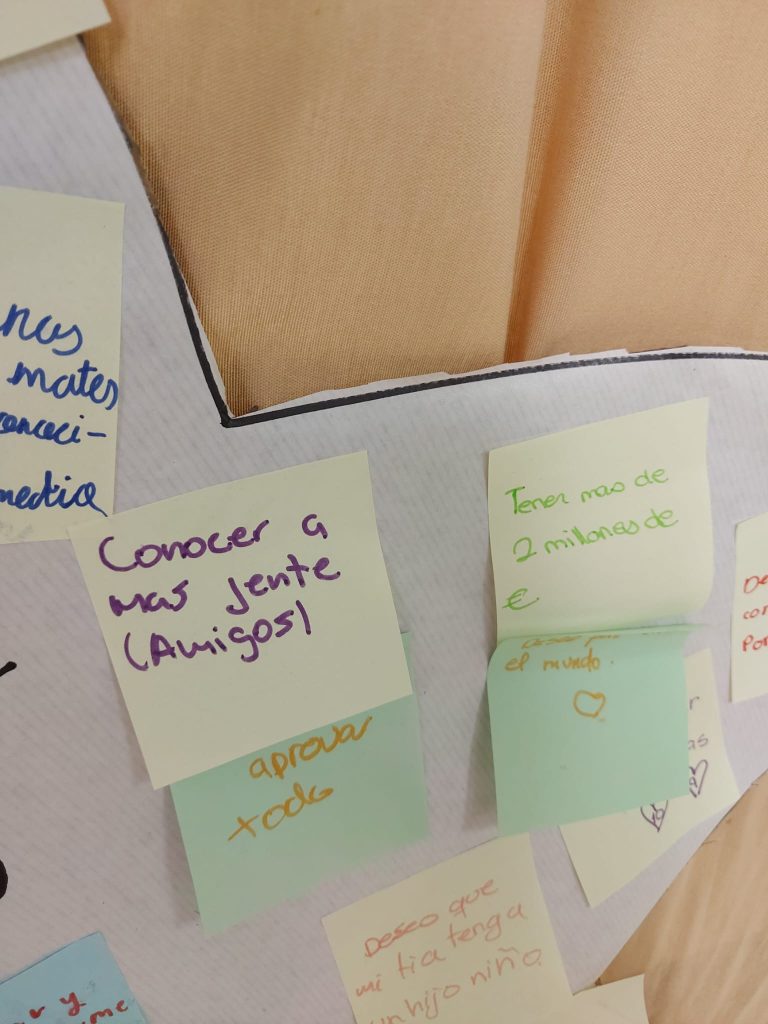 nas
mates
conoci-
media
Conocer a
mas jente
(Amigos)
aprovar
todo
Tener mas de
2 millones de
€
el mundo.
Deseo que
mi tia tenga
un hijo niño
y